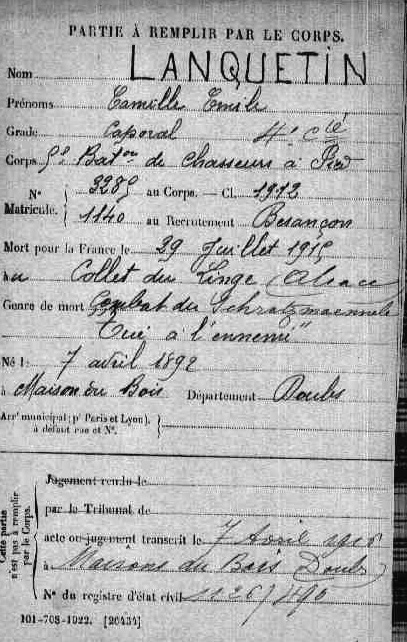 PARTIE À REMPLIR PAR LE CORPS.
Nom LANQUETIN
Prénoms Camille Emile
Grade Caporal 4e Cie
Corps 5e Baton de Chasseurs à Pied
N° Matricule. 3285 au Corps. — Cl. 1912
1140 au Recrutement Besançon
Mort pour la France le 29 Juillet 1915
au Collet du Linge (Alsace
Genre de mort Combat du Schratzmaennele
"Tué à l'ennemi"
Né le 7 avril 1892
à Maison du Bois Département Doubs
Arrt municipal (pr Paris et Lyon),
à défaut rue et N°.
Cette partie n'est pas à remplir par le Corps.
Jugement rendu le
par le Tribunal de
acte ou jugement transcrit le 7 Avril 1916
à Maisons du Bois Doubs
N° du registre d'état civil
101-708-1922. [26434]